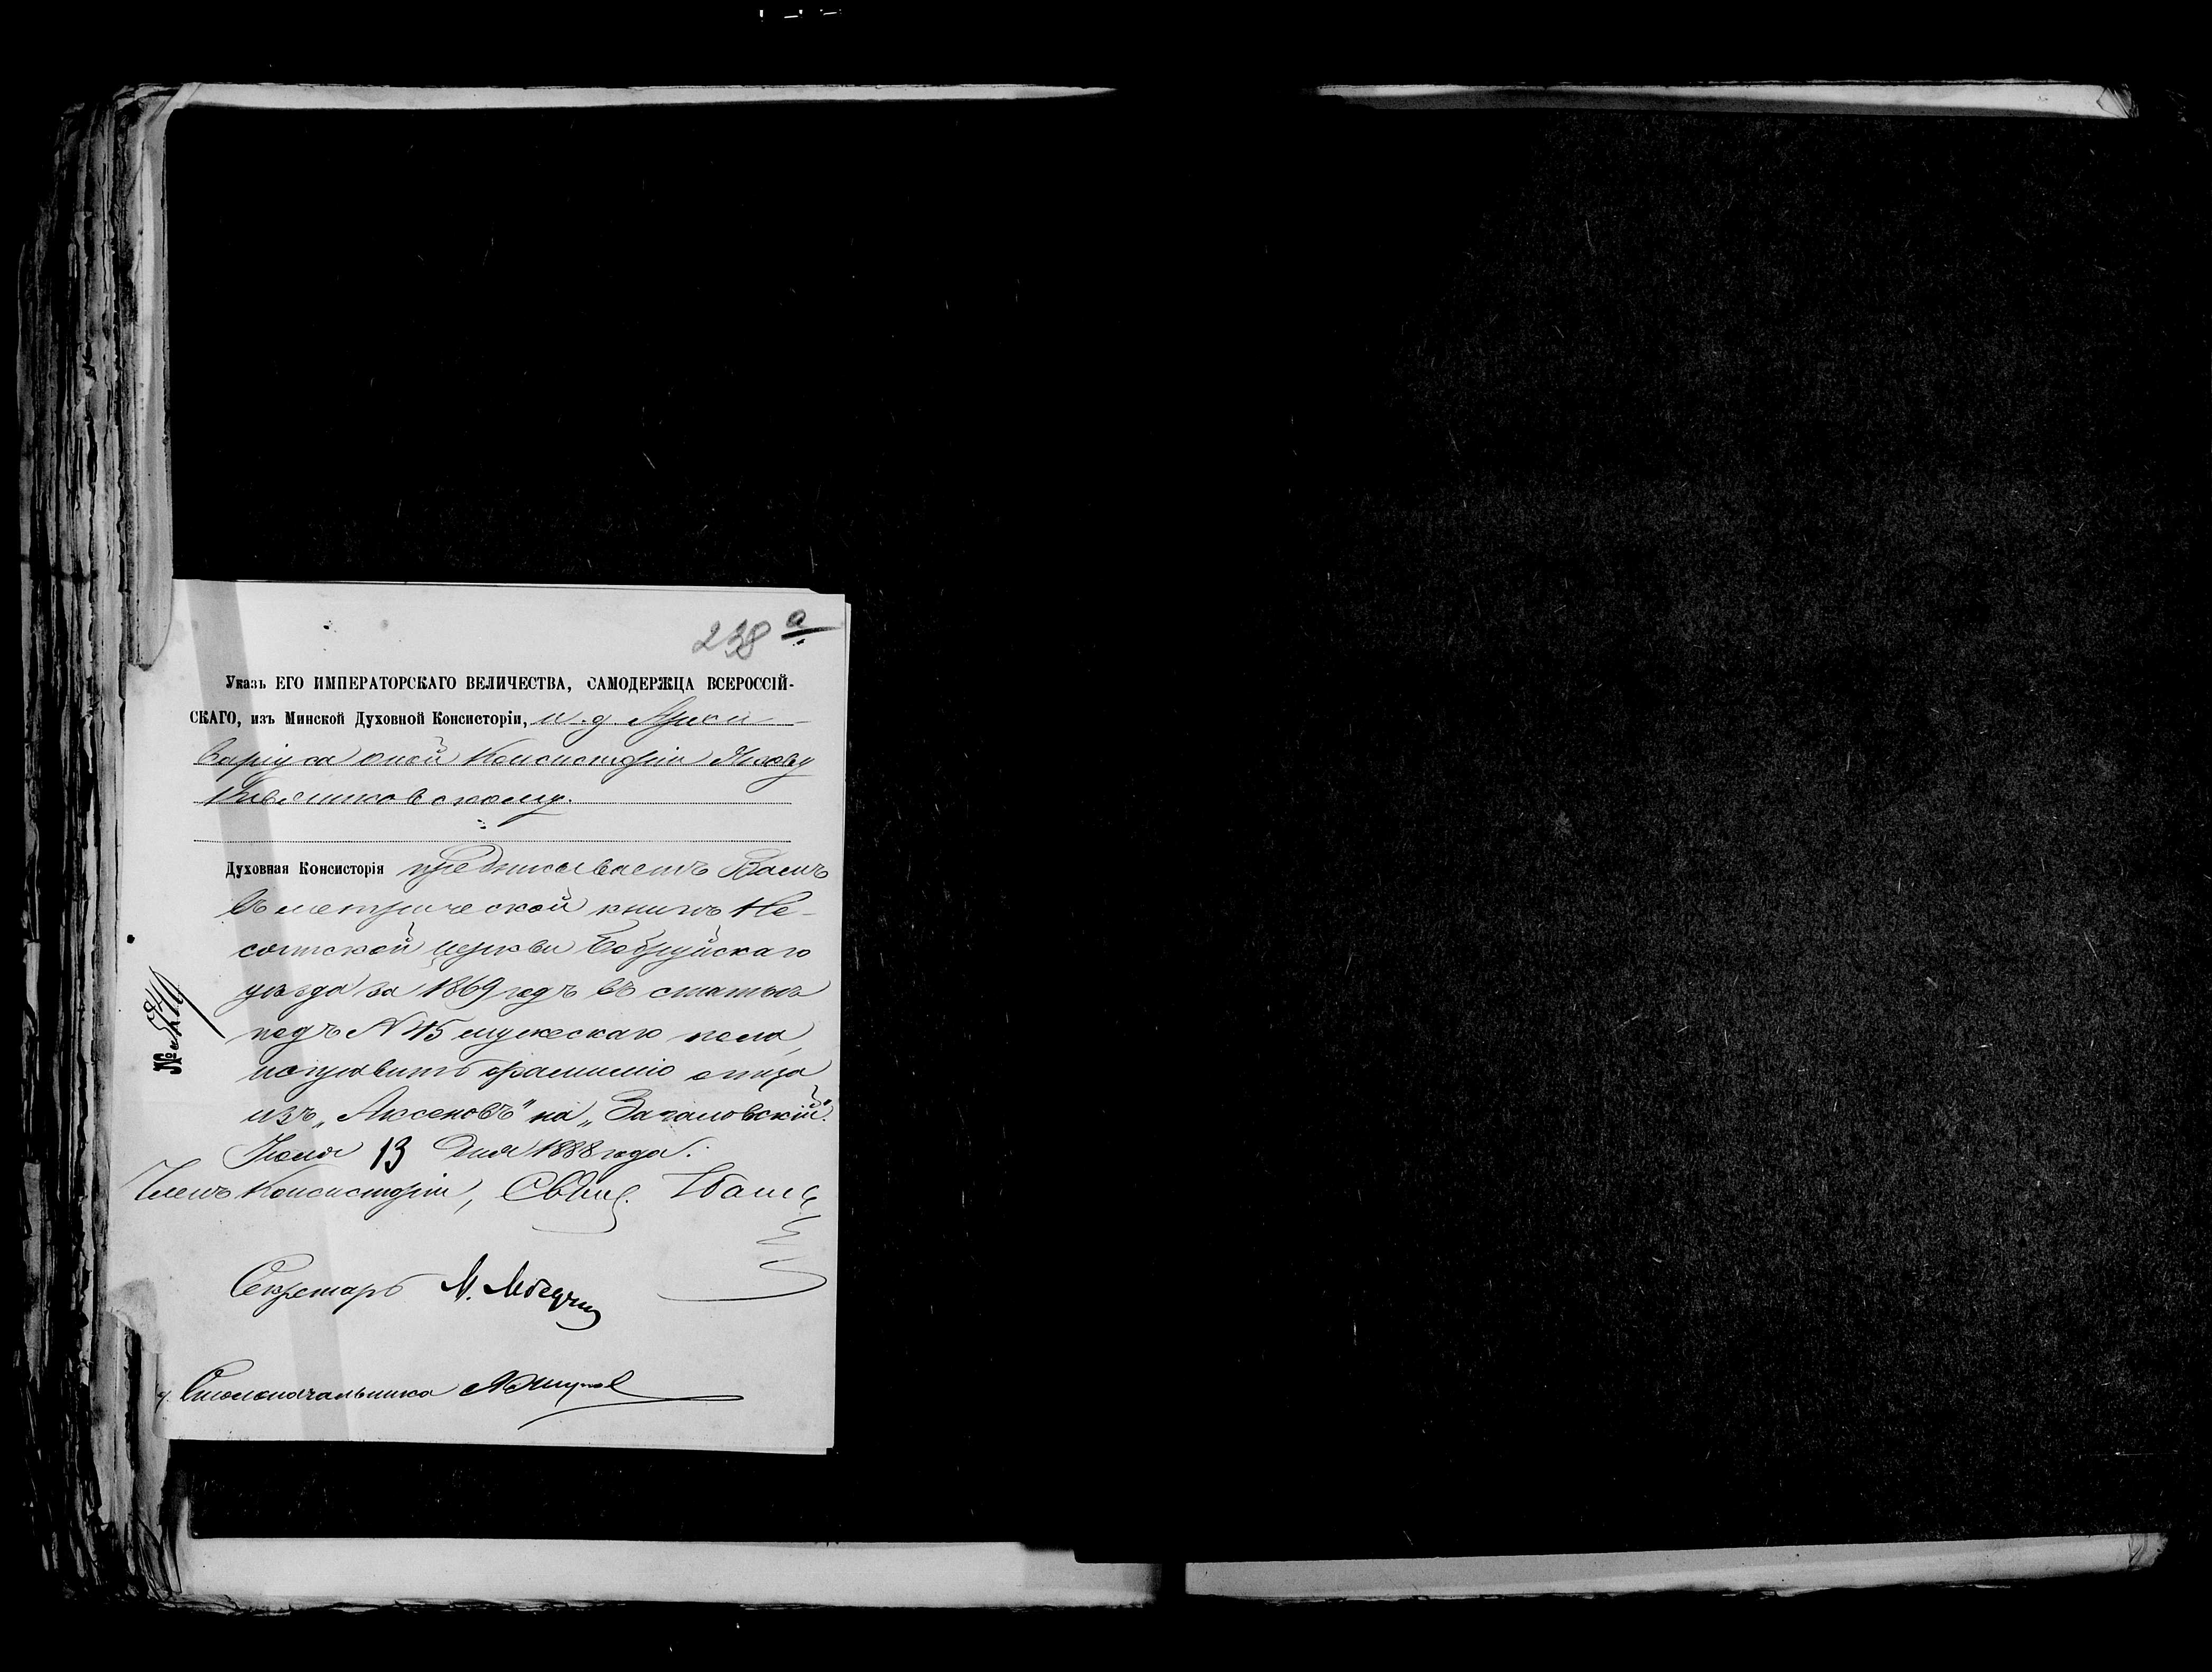 238 а
Указъ ЕГО ИМПЕРАТОРСКАГО ВЕЛИЧЕСТВА, САМОДЕРЖЦА ВСЕРОССІЙ-
СКАГО, изъ Минской Духовной Консисторіи, и. д. Архи-
варіуса оной Консисторіи
Духовная Консисторія предписываетъ Вамъ
въ метрической книгѣ Не-
сотской церкви Бобруйскаго
уѣзда за 1869 годъ въ статьѣ
подъ № 45 мужескаго пола,
исправить фамилію отца
изъ „Аксеновъ" на „Загаловскій".
Іюля 13 дня 1888 года.
Членъ Консисторіи, Свящ.
Секретарь
Столоначальника
№